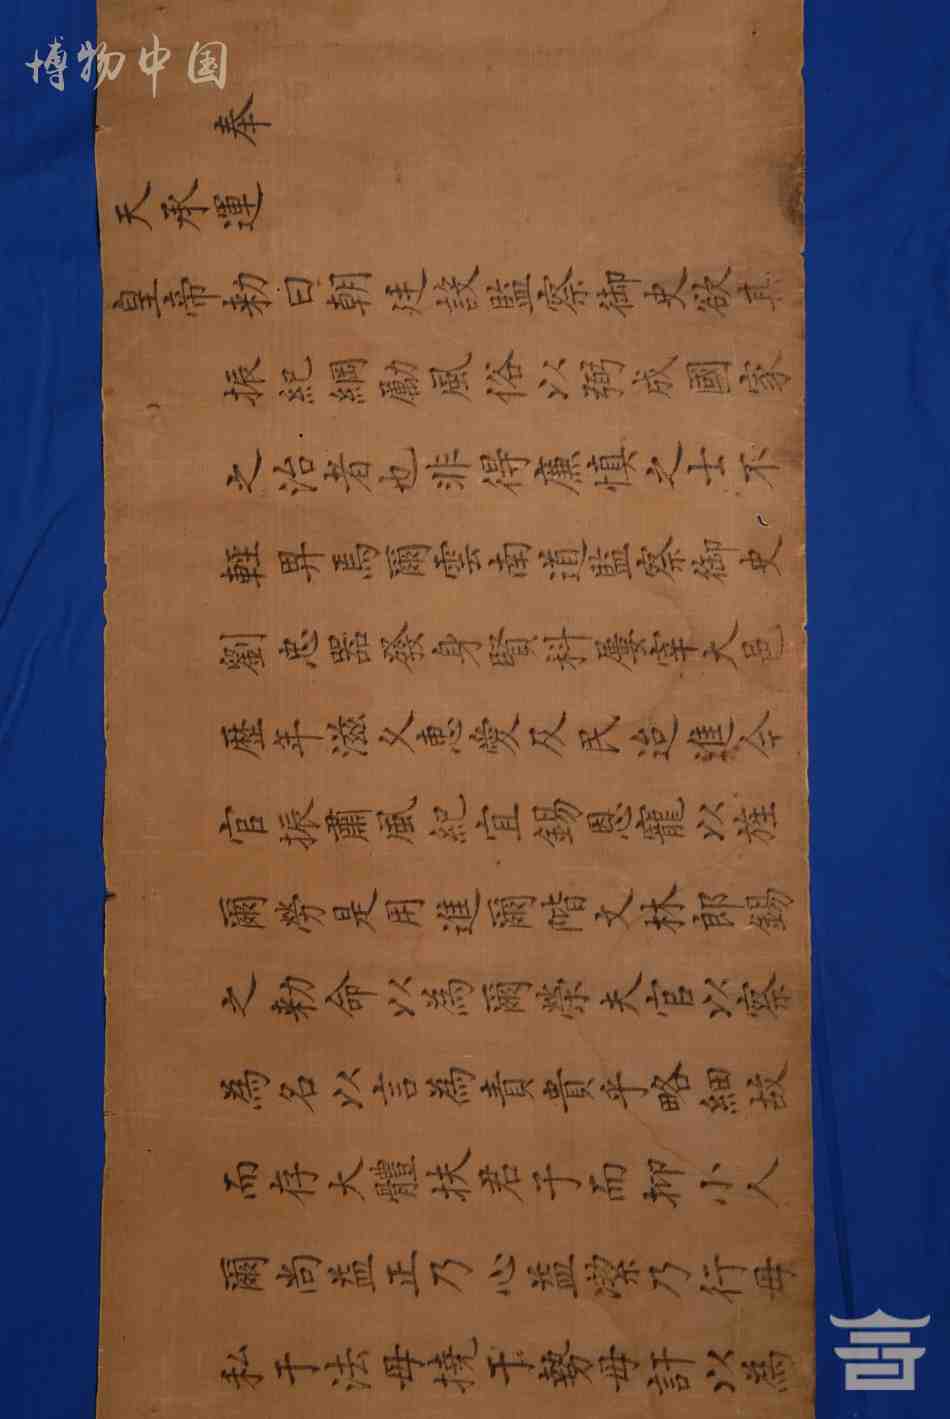 博物中国
奉
天承運
皇帝勅曰朝廷設監察御史欲其
振紀綱勵風俗以弼成國家
之治者也非得廉慎之士不
輕畀焉爾雲南道監察御史
劉忠器發身賢科屢宰大邑
歷年滋久惠愛及民迨進今
官振肅風紀宜錫恩寵以旌
爾勞是用進爾階文林郎錫
之勅命以為爾榮夫官以察
為名以言為責貴乎略細故
而存大體扶君子而抑小人
爾尚益正乃心益潔乃行毋
私于法毋撓于勢毋訐以為